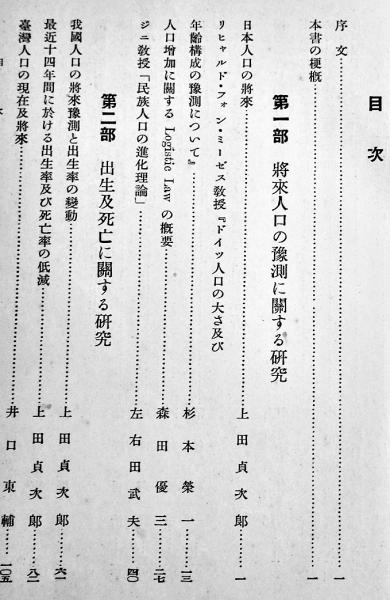 目次
序文……………一
本書の梗概……………一
第一部 將來人口の豫測に關する硏究
日本人口の將來……………上田貞次郎……一
リヒャルド・フォン・ミーゼス教授『ドイツ人口の大さ及び
年齡構成の豫測について』……………杉本榮一……一三
人口增加に關する Logistic Law の槪要……………森田優三……二七
ジニ教授「民族人口の進化理論」……………左右田武夫……四〇
第二部 出生及死亡に關する硏究
我國人口の將來豫測と出生率の變動……………上田貞次郎……六一
最近十四年間に於ける出生率及び死亡率の低減……………上田貞次郎……八二
臺灣人口の現在及將來……………井口東輔……一〇五